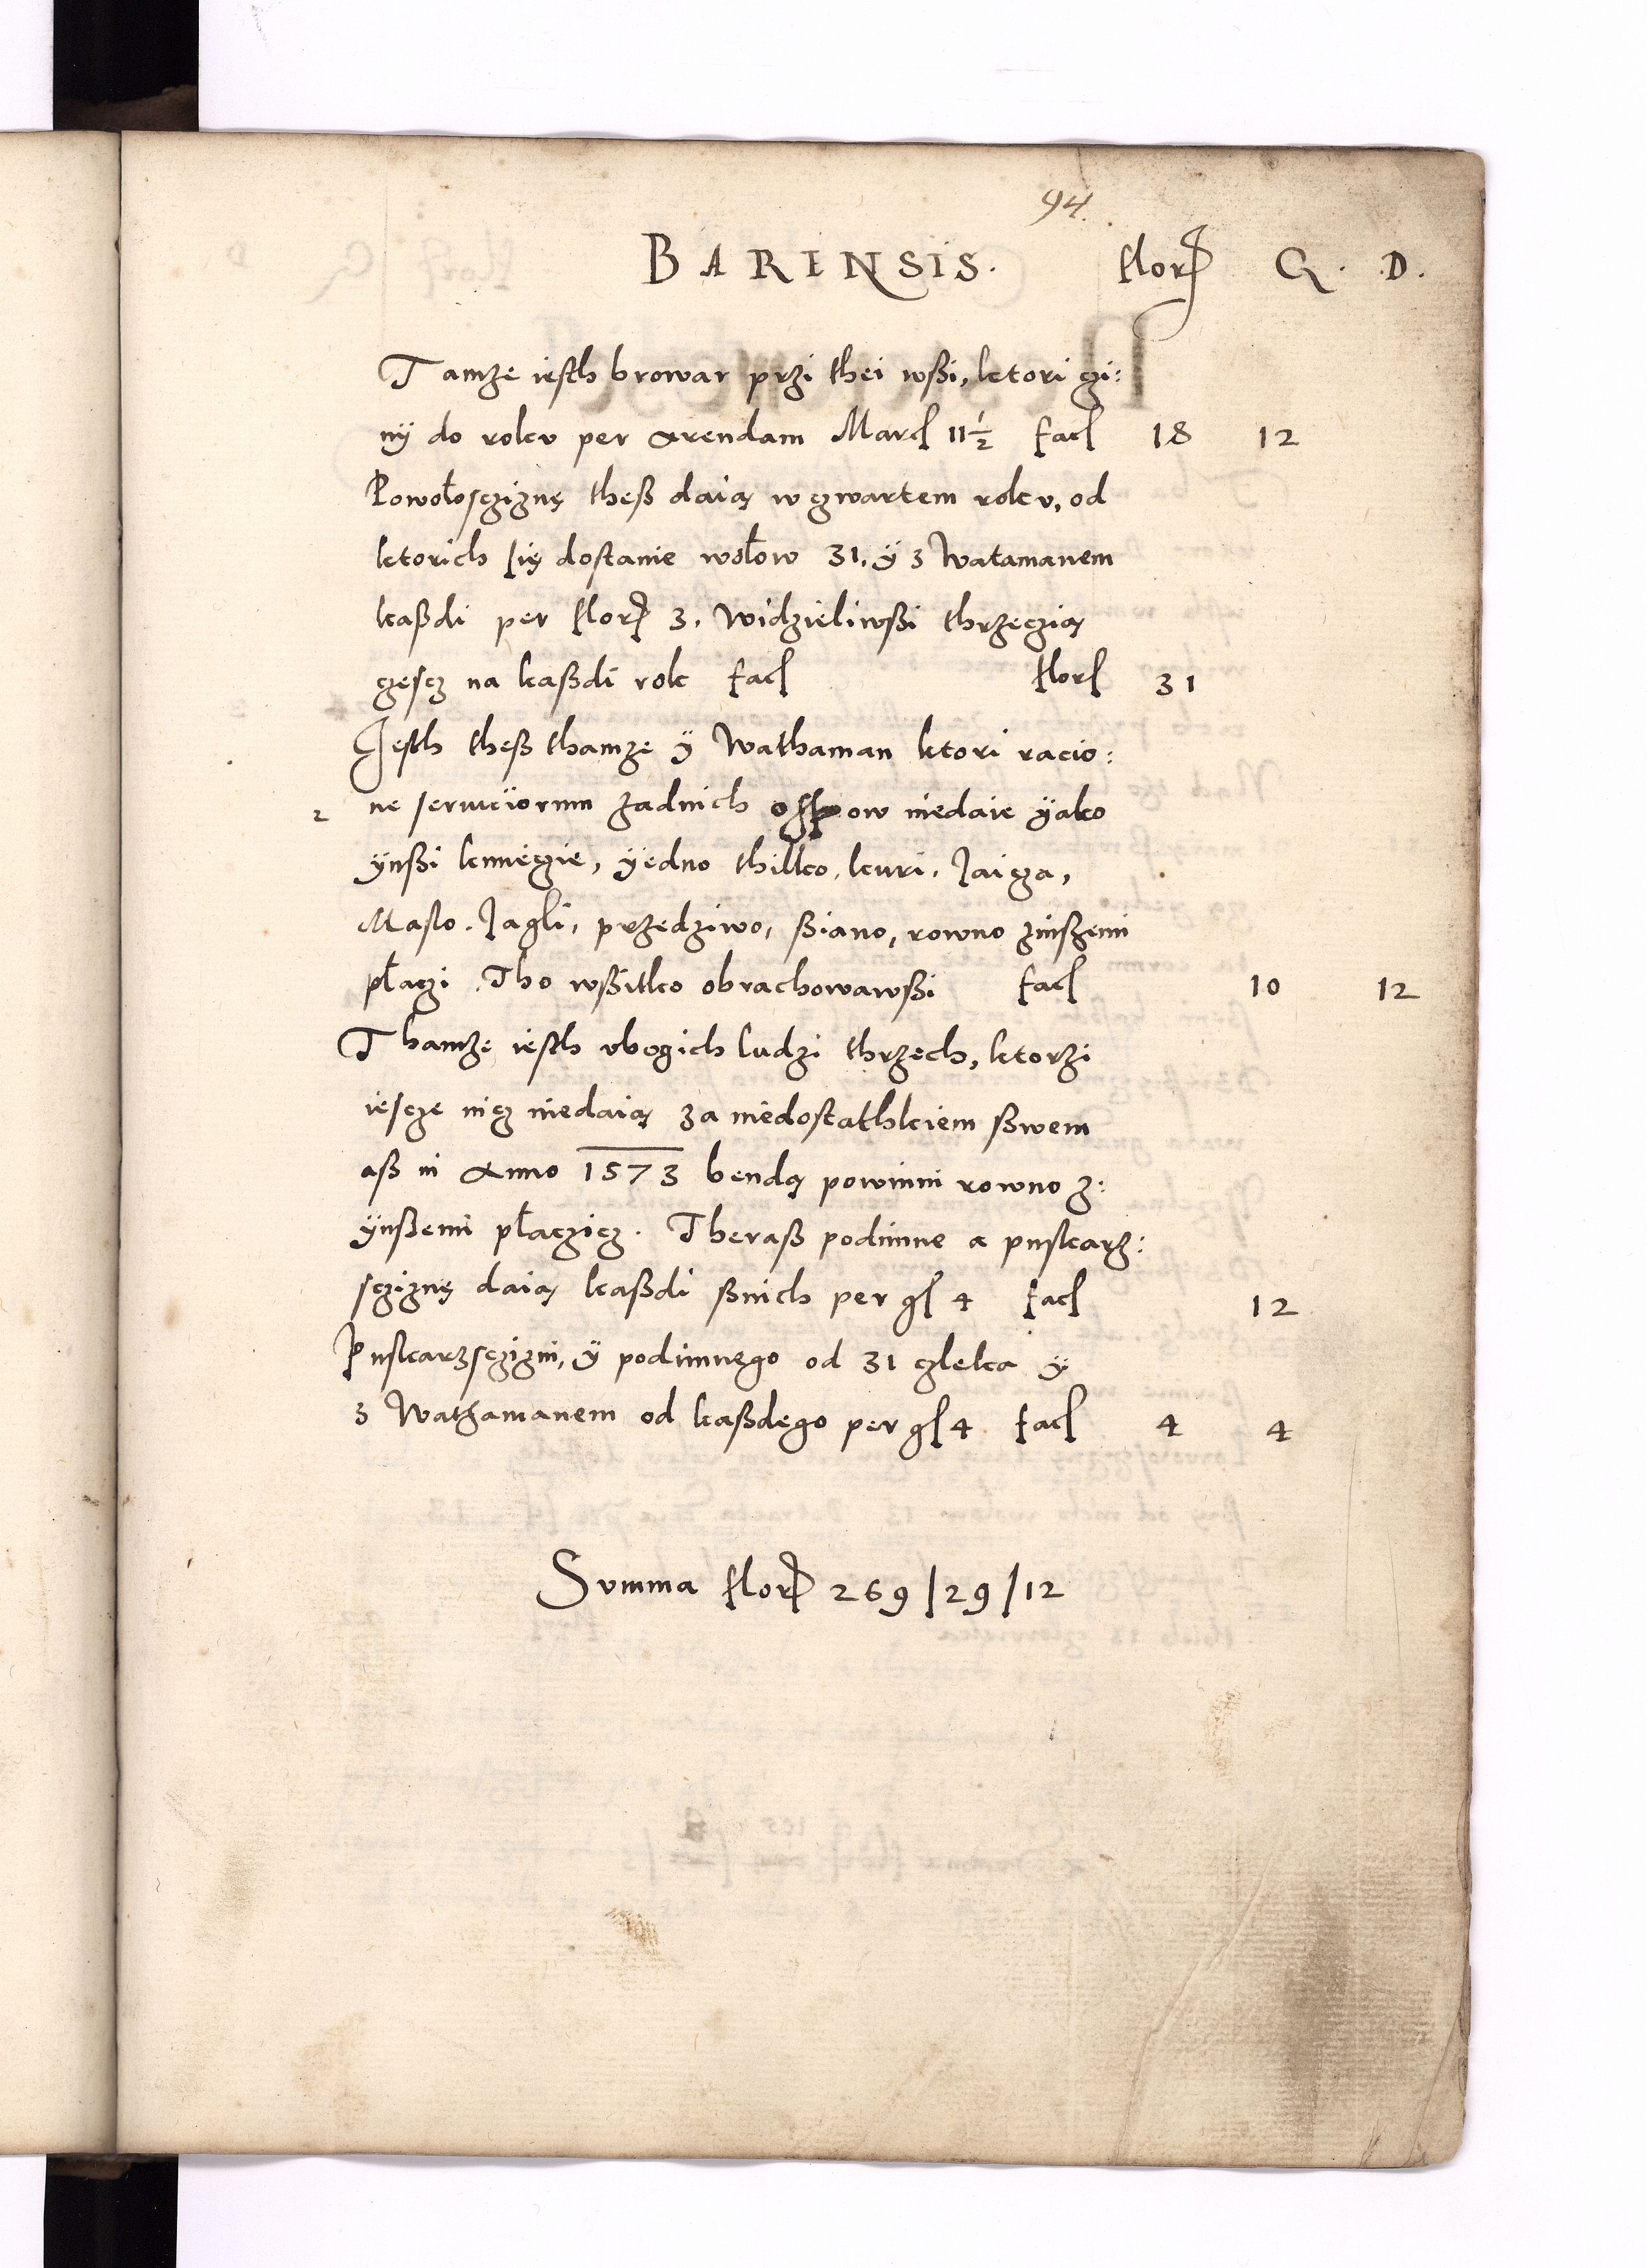 94.
BARINSIS. flor G. D.
Tamże iesth browar przi thei wßi, ktori czi:
nÿ do rokv per arendam Marc 11½ fac 18 12
Powołoscziznę theß daią w czwartem rokv, od
ktorich się dostanie wołow 31, ÿ z Watamanem
kaßdi per flor 3. Widzieliwßi thrzeczią
czescz na kaßdi rok fac flor 31
Jesth theß thamze ÿ Wathaman ktori racio:
2 ne seruiciorum żadnich osspow niedaie ÿako
ÿnßi kmieczie, ÿedno thilko, kuri, Jaicza,
Maslo. Jagli, przedziwo, ßiano, rowno zinszemi
płaczi. Tho wßitko obrachowawßi fac 10 12
Thamże iesth vbogich ludzi thrzech, ktorzi
iescze nicz niedaią za niedostathkiem ßwem
aß in Anno 1573 bendą powinni rowno z:
ÿnßemi płaczicz. Theraß podimne a puskarz:
scziznę daią kaßdi ßnich per gl 4 fac 12
Puskarzsczizni, ÿ podimnego od 31 czleka ÿ
z Wathamanem od kaßdego per gl 4 fac 4 4
Svmma flor 269/29/12